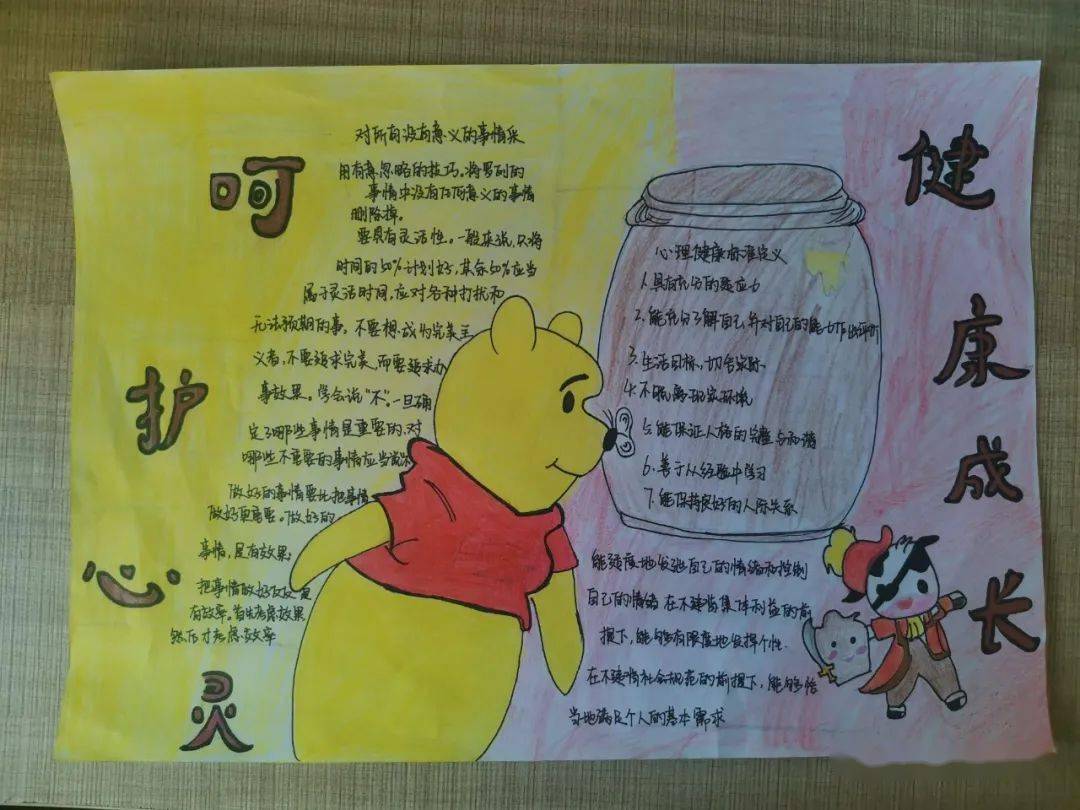 呵
护
心
灵
对所有没有意义的事情采
用有意忽略的技巧。将罗列的
事情中没有任何意义的事情
删除掉。
要具有灵活性。一般来说，只将
时间的50%计划好，其余50%应当
属于灵活时间，应对各种打扰和
无法预期的事。不要想成为完美主
义者，不要追求完美，而要追求办
事效果。学会说“不”。一旦确
定了哪些事情是重要的、对
哪些不重要的事情应当说不
做好的事情要比把事情
做好更重要。做好的
事情，是有效果；
把事情做好仅仅是
有效率。首先考虑效果
然后才考虑效率
健
康
成
长
心理健康标准定义
1.具有充分的适应力
2.能充分了解自己，并对自己的能力作出评价
3.生活目标，切合实际
4.不脱离现实环境
5.能保证人格的完整与和谐
6.善于从经验中学习
7.能保持良好的人际关系
能适度地发泄自己的情绪和控制
自己的情绪 在不违背集体利益的前
提下，能够有限度地发挥个性.
在不违背社会规范的前提下，能够恰
当地满足个人的基本需求